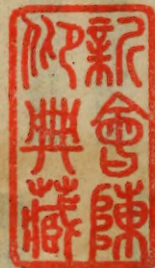 新會陳
典藏